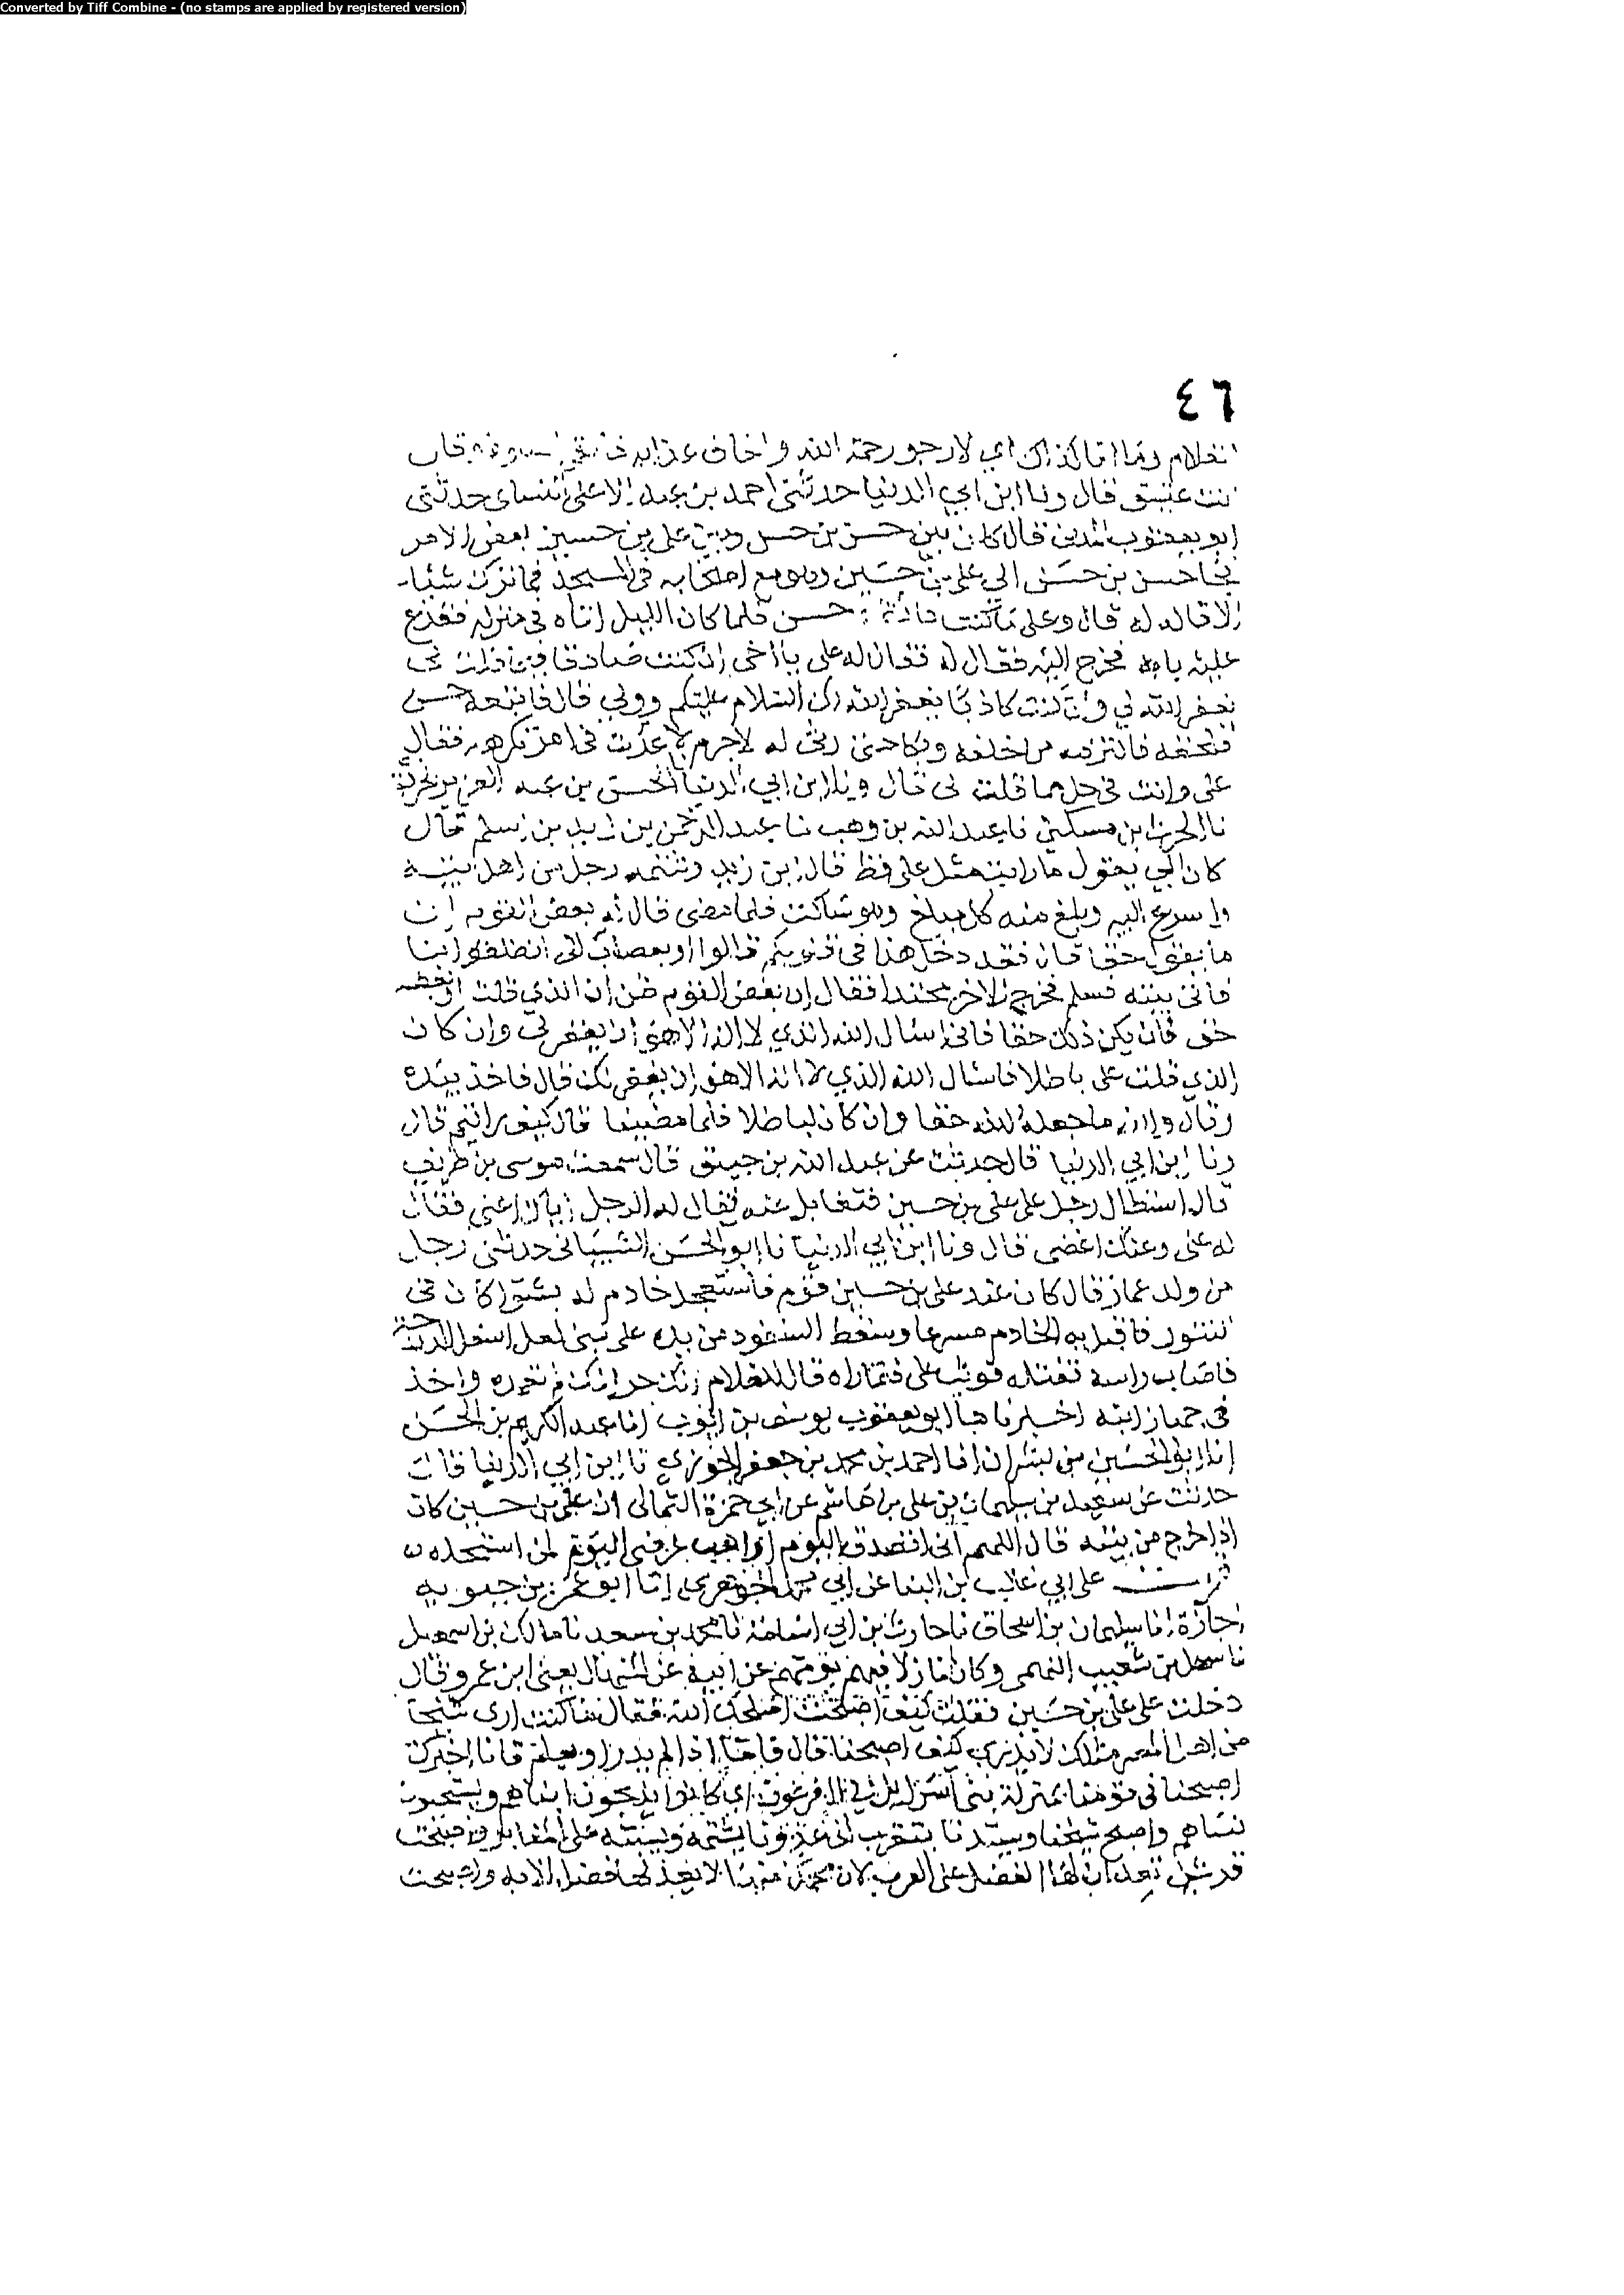 Converted by Tiff Combine - (no stamps are applied by registered version)
٤٦
الغلام وما انا كذاك اي لارجو رحمة الله واخاف عذابه قال
انت عتيق قال ونا ابن ابي الدنيا حدثني احمد بن عبد الاعلى الشيباني حدثني
ابو يعقوب المدني قال كان بين حسن بن حسن وبين علي بن حسين بعض الامر
فجا حسن بن حسن الى علي بن حسين وهو مع اصحابه في المسجد فما ترك شيئا
الا قاله له قال وعلي ساكت حسن فلما كان الليل اتاه في منزله فقرع
عليه بابه فخرج اليه فقال له فقال له علي يا اخي ان كنت صادقا فيما قلت لي
يغفر الله لي وان كنت كاذبا يغفر الله لك السلام عليكم وولى قال فاتبعه حسن
فلحقه فالتزمه من خلفه وبكا حتى رثى له لا جرم لا عدت في امر تكرهه فقال
علي وانت في حل مما قلت لي قال ونا ابن ابي الدنيا نا الحسن بن عبد العزيز الجروي
نا الحرث بن مسكين نا عبد الله بن وهب نا عبد الرحمن بن زيد بن اسلم قال
كان ابي يقول ما رايت مثل علي فظ قال ابن زيد وشتمه رجل من اهل بيته
واسرع اليه وبلغ منه كل مبلغ وهو ساكت فلما مضى قال له بعض القوم ان
ما بقي حقا قال فقد دخل هذا في قلوبكم قالوا او بعضنا قال انطلقوا بنا
فاتى بيته فسلم فخرج الاخر محتدا فقال ان بعض القوم ظن ان الذي قلت او بعضه
حق فان يكن ذلك حقا فاني اسال الله الذي لا اله الا هو ان يغفر لي وان كان
الذي قلت علي باطلا فاسال الله الذي لا اله الا هو ان يغفر لك قال فاخذ بيده
وقال والله ما جعله الله حقا وان كان لباطلا فلما مضينا قال كيف رايتم قال
ونا ابن ابي الدنيا قال حدثت عن عبد الله بن خبيق قال سمعت موسى بن طريف
قال استطال رجل على علي بن حسين فتغافل عنه فقال له الرجل اياك اعني فقال
له علي وعنك اغضي قال ونا ابن ابي الدنيا نا ابو الحسن الشيباني حدثني رجل
من ولد عمار قال كان عند علي بن حسين قوم فاستعجل خادم له بشوا كان في
التنور فاقبل به الخادم مسرعا وسقط السفود من يده على بني لعلي اسفل الدرجة
فاصاب راسه فقتله فوثب علي فلما راه قال للغلام انك حر انك لم تعمده واخذ
في جهاز ابنه اخبرنا بها ابو يعقوب يوسف بن ايوب انا عبد الكريم بن الحسن
انا ابو الحسين بن بشران انا احمد بن محمد بن جعفر الجوزي نا ابن ابي الدنيا قال
حدثت عن سعيد بن سليمان عن علي بن هاشم عن ابي حمزة الثمالي ان علي بن حسين كان
اذا خرج من بيته قال اللهم اني اتصدق اليوم او اهب عرضي اليوم لمن استحله
قرات على ابي غالب بن البنا عن ابي محمد الجوهري انا ابو عمر بن حيويه
اجازة انا سليمان بن اسحاق نا حارث بن ابي اسامة نا محمد بن سعد نا مالك بن اسمعيل
نا سهل بن شعيب النهمي وكان نازلا فيهم يؤمهم عن ابيه عن المنهال يعني ابن عمرو قال
دخلت على علي بن حسين فقلت كيف اصبحت اصلحك الله فقال ما كنت ارى شيخا
من اهل المصر مثلك لا يدري كيف اصبحنا قال فاما اذا لم تدر او تعلم فانا اخبرك
اصبحنا في قومنا بمنزلة بني اسرائيل في ال فرعون اذ كانوا يذبحون ابناهم ويستحيون
نساهم واصبح شيخنا وسيدنا يتقرب الى عدونا بشتمه وسبه على المنابر واصبحت
قريش تعد ان لها الفضل على العرب لان محمدا منها لا يعد لها فضل الا به واصبحت